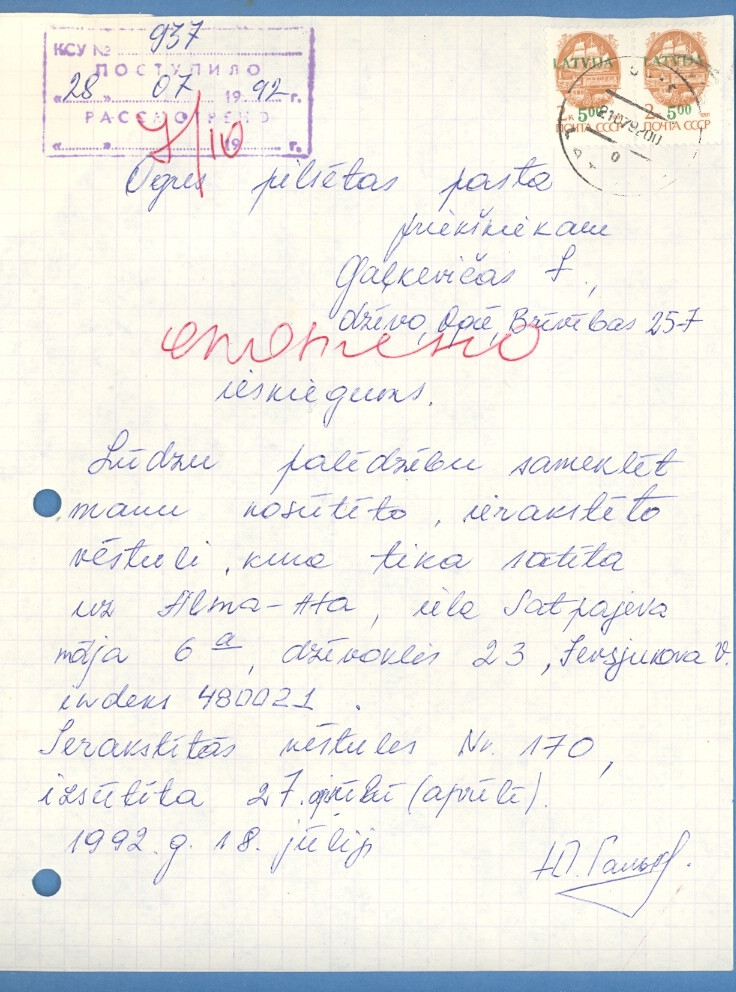 КСУ № 937
ПОСТУПИЛО
« 28 » 07 19 92 г.
РАССМОТРЕНО
« » 19 г.
LATVIJA LATVIJA
2к 500 2к 500
ПОЧТА СССР ПОЧТА СССР
21079200
Ogres pilsētas pasta
priekšniekam
Gaļkevičas J,
dzīvo, Ogrē, Brīvības 25-7
iesniegums.
Lūdzu palīdzību sameklēt
manu nosūtīto, ierakstīto
vēstuli, kura tika sūtīta
uz Alma-Ata, iela Satpajeva
māja 6 a, dzīvoklis 23, V.
indeks 480021.
Ierakstītās vēstules Nr. 170,
izsūtīta 27. aprīlī (aprīlī).
1992. g. 18. jūlijs